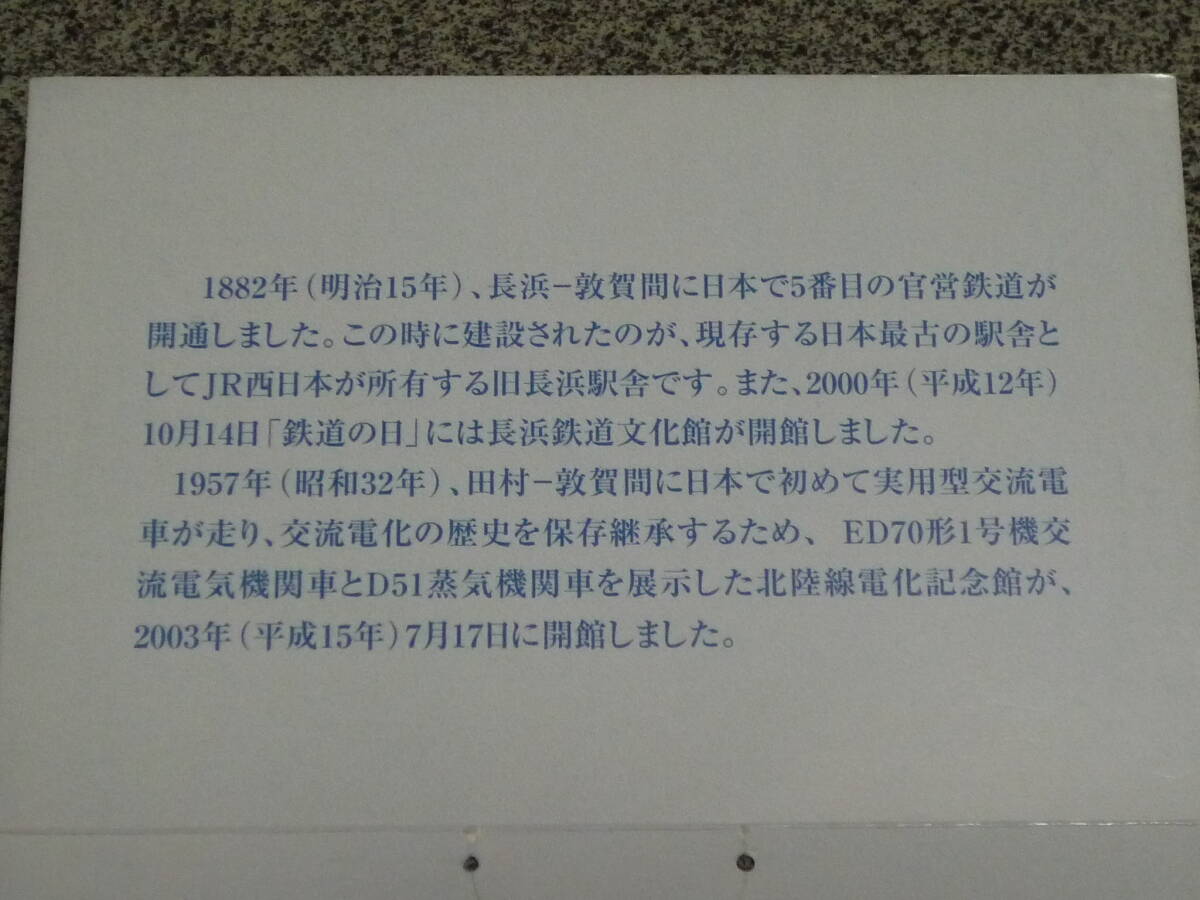 1882年(明治15年)、長浜−敦賀間に日本で5番目の官営鉄道が
開通しました。この時に建設されたのが、現存する日本最古の駅舎と
してJR西日本が所有する旧長浜駅舎です。また、2000年(平成12年)
10月14日「鉄道の日」には長浜鉄道文化館が開館しました。
1957年(昭和32年)、田村−敦賀間に日本で初めて実用型交流電
車が走り、交流電化の歴史を保存継承するため、 ED70形1号機交
流電気機関車とD51蒸気機関車を展示した北陸線電化記念館が、
2003年(平成15年)7月17日に開館しました。